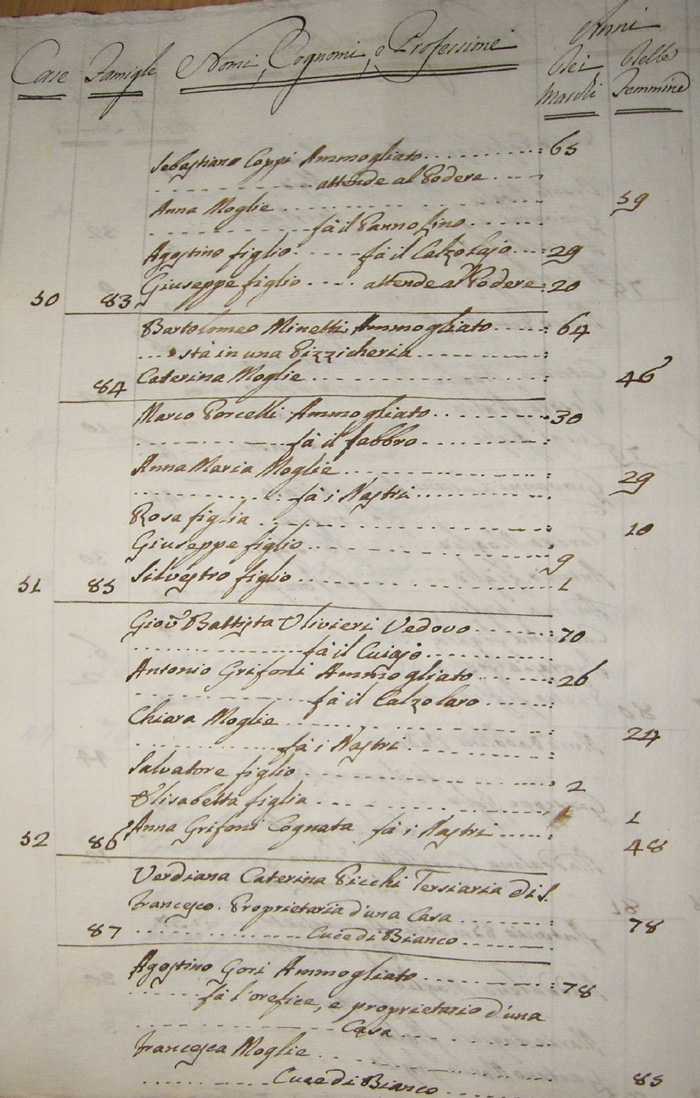 Case Famiglie Nomi, Cognomi, e Professione Anni Dei Maschi Anni Delle Femmine
Sebastiano Coppi Ammogliato 65
attende al Podere
Anna Moglie 59
fà il Panno fino
Agostino figlio fà il Calzolajo 29
50 83 Giuseppe figlio attende al Podere 20
Bartolomeo Minetti Ammogliato 64
stà in una Pizzicheria
84 Caterina Moglie 46
Marco Porcelli Ammogliato 30
fà il fabbro
Anna Maria Moglie
fà i Nastri 29
Rosa figlia 10
Giuseppe figlio 9
51 85 Silvestro figlio 1
Giov: Battista Ulivieri Vedovo 70
fà il Cuiajo
Antonio Grifoni Ammogliato 26
fà il Calzolaro
Chiara Moglie 24
fà i Nastri
Salvatore figlio 2
Elisabetta figlia 1
52 86 Anna Grifoni Cognata fà i Nastri 48
Verdiana Caterina Picchi Tersiaria di S.
Francesco. Proprietaria d'una Casa 78
87 Cuce di Bianco
Agostino Gori Ammogliato 78
fà l'orefice, e proprietario d'una
Casa
Francesca Moglie
Cuce di Bianco 85